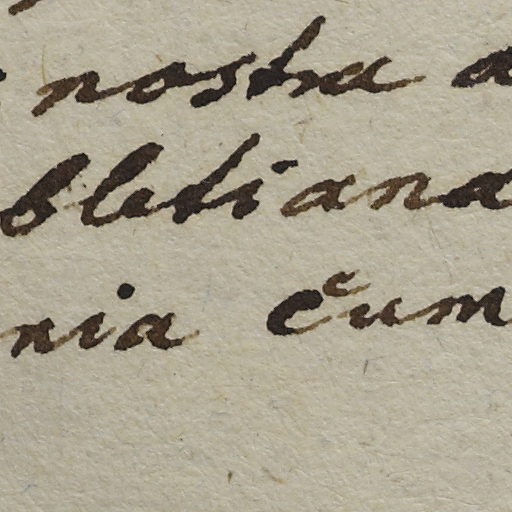 nostra a
bletiana
nia cum